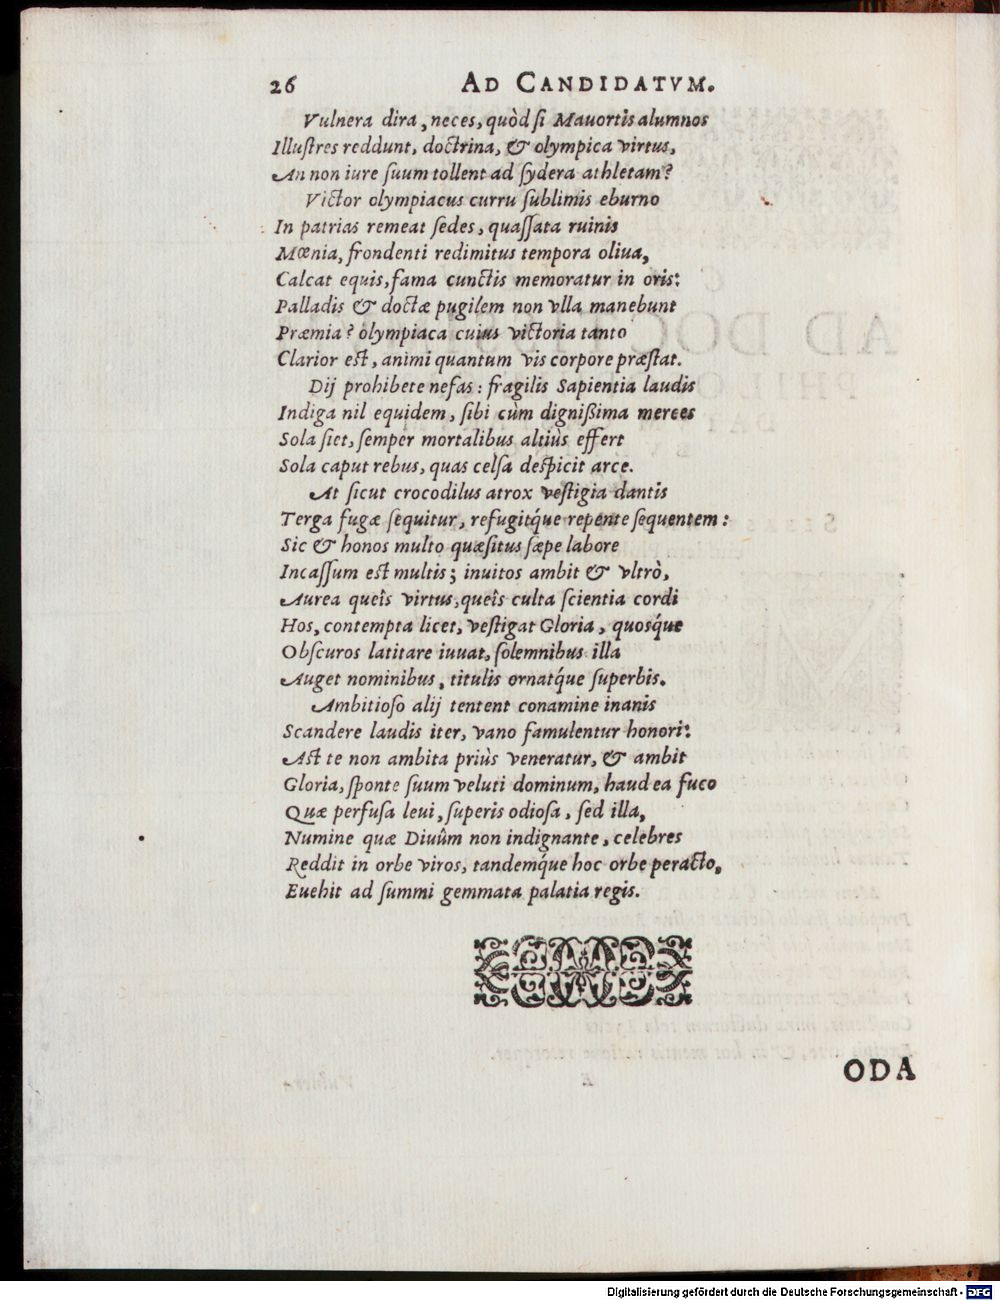 26 AD CANDIDATVM.
Vulnera dira, neces, quòd ſi Mauortis alumnos
Illuſtres reddunt, doctrina, & olympica virtus,
An non iure ſuum tollent ad ſydera athletam?
Victor olympiacus curru ſublimis eburno
In patrias remeat ſedes, quaſſata ruinis
Mœnia, frondenti redimitus tempora oliua,
Calcat equis, fama cunctis memoratur in oris:
Palladis & doctæ pugilem non vlla manebunt
Præmia? olympiaca cuius victoria tanto
Clarior eſt, animi quantum vis corpore præſtat.
Dij prohibete nefas: fragilis Sapientia laudis
Indiga nil equidem, ſibi cùm digniſſima merces
Sola ſiet, ſemper mortalibus altiùs effert
Sola caput rebus, quas celſa deſpicit arce.
At ſicut crocodilus atrox veſtigia dantis
Terga fugæ ſequitur, refugitq́ue repente ſequentem:
Sic & honos multo quæſitus ſæpe labore
Incaſſum eſt multis; inuitos ambit & vltrò,
Aurea queîs virtus, queîs culta ſcientia cordi
Hos, contempta licet, veſtigat Gloria, quosq́ue
Obſcuros latitare iuuat, ſolemnibus illa
Auget nominibus, titulis ornatq́ue ſuperbis.
Ambitioſo alij tentent conamine inanis
Scandere laudis iter, vano famulentur honori:
Aſt te non ambita priùs veneratur, & ambit
Gloria, ſponte ſuum veluti dominum, haud ea fuco
Quæ perfuſa leui, ſuperis odioſa, ſed illa,
Numine quæ Diuûm non indignante, celebres
Reddit in orbe viros, tandemq́ue hoc orbe peracto,
Euehit ad ſummi gemmata palatia regis.
ODA
Digitalisierung gefördert durch die Deutsche Forschungsgemeinschaft - DFG